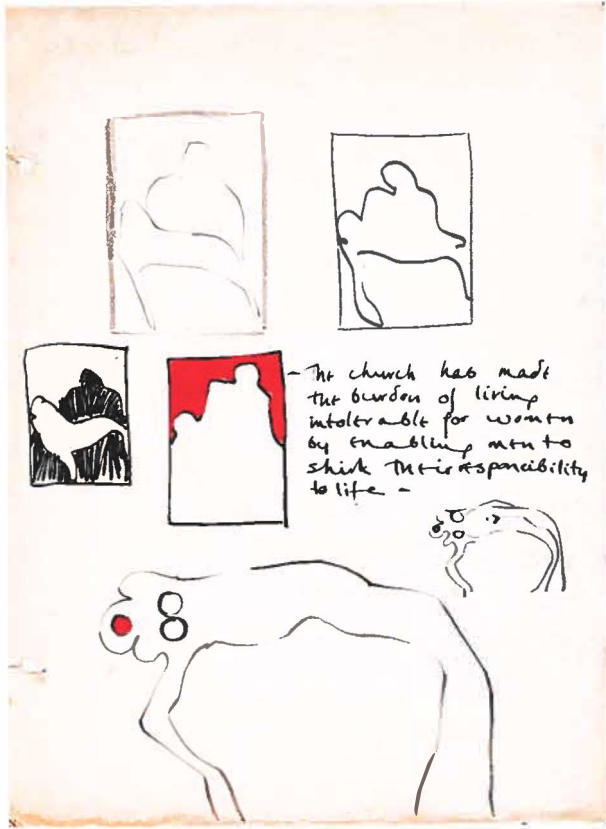 – The church has made
the burden of living
intolerable for women
by enabling men to
shirk their responcibility
to life –